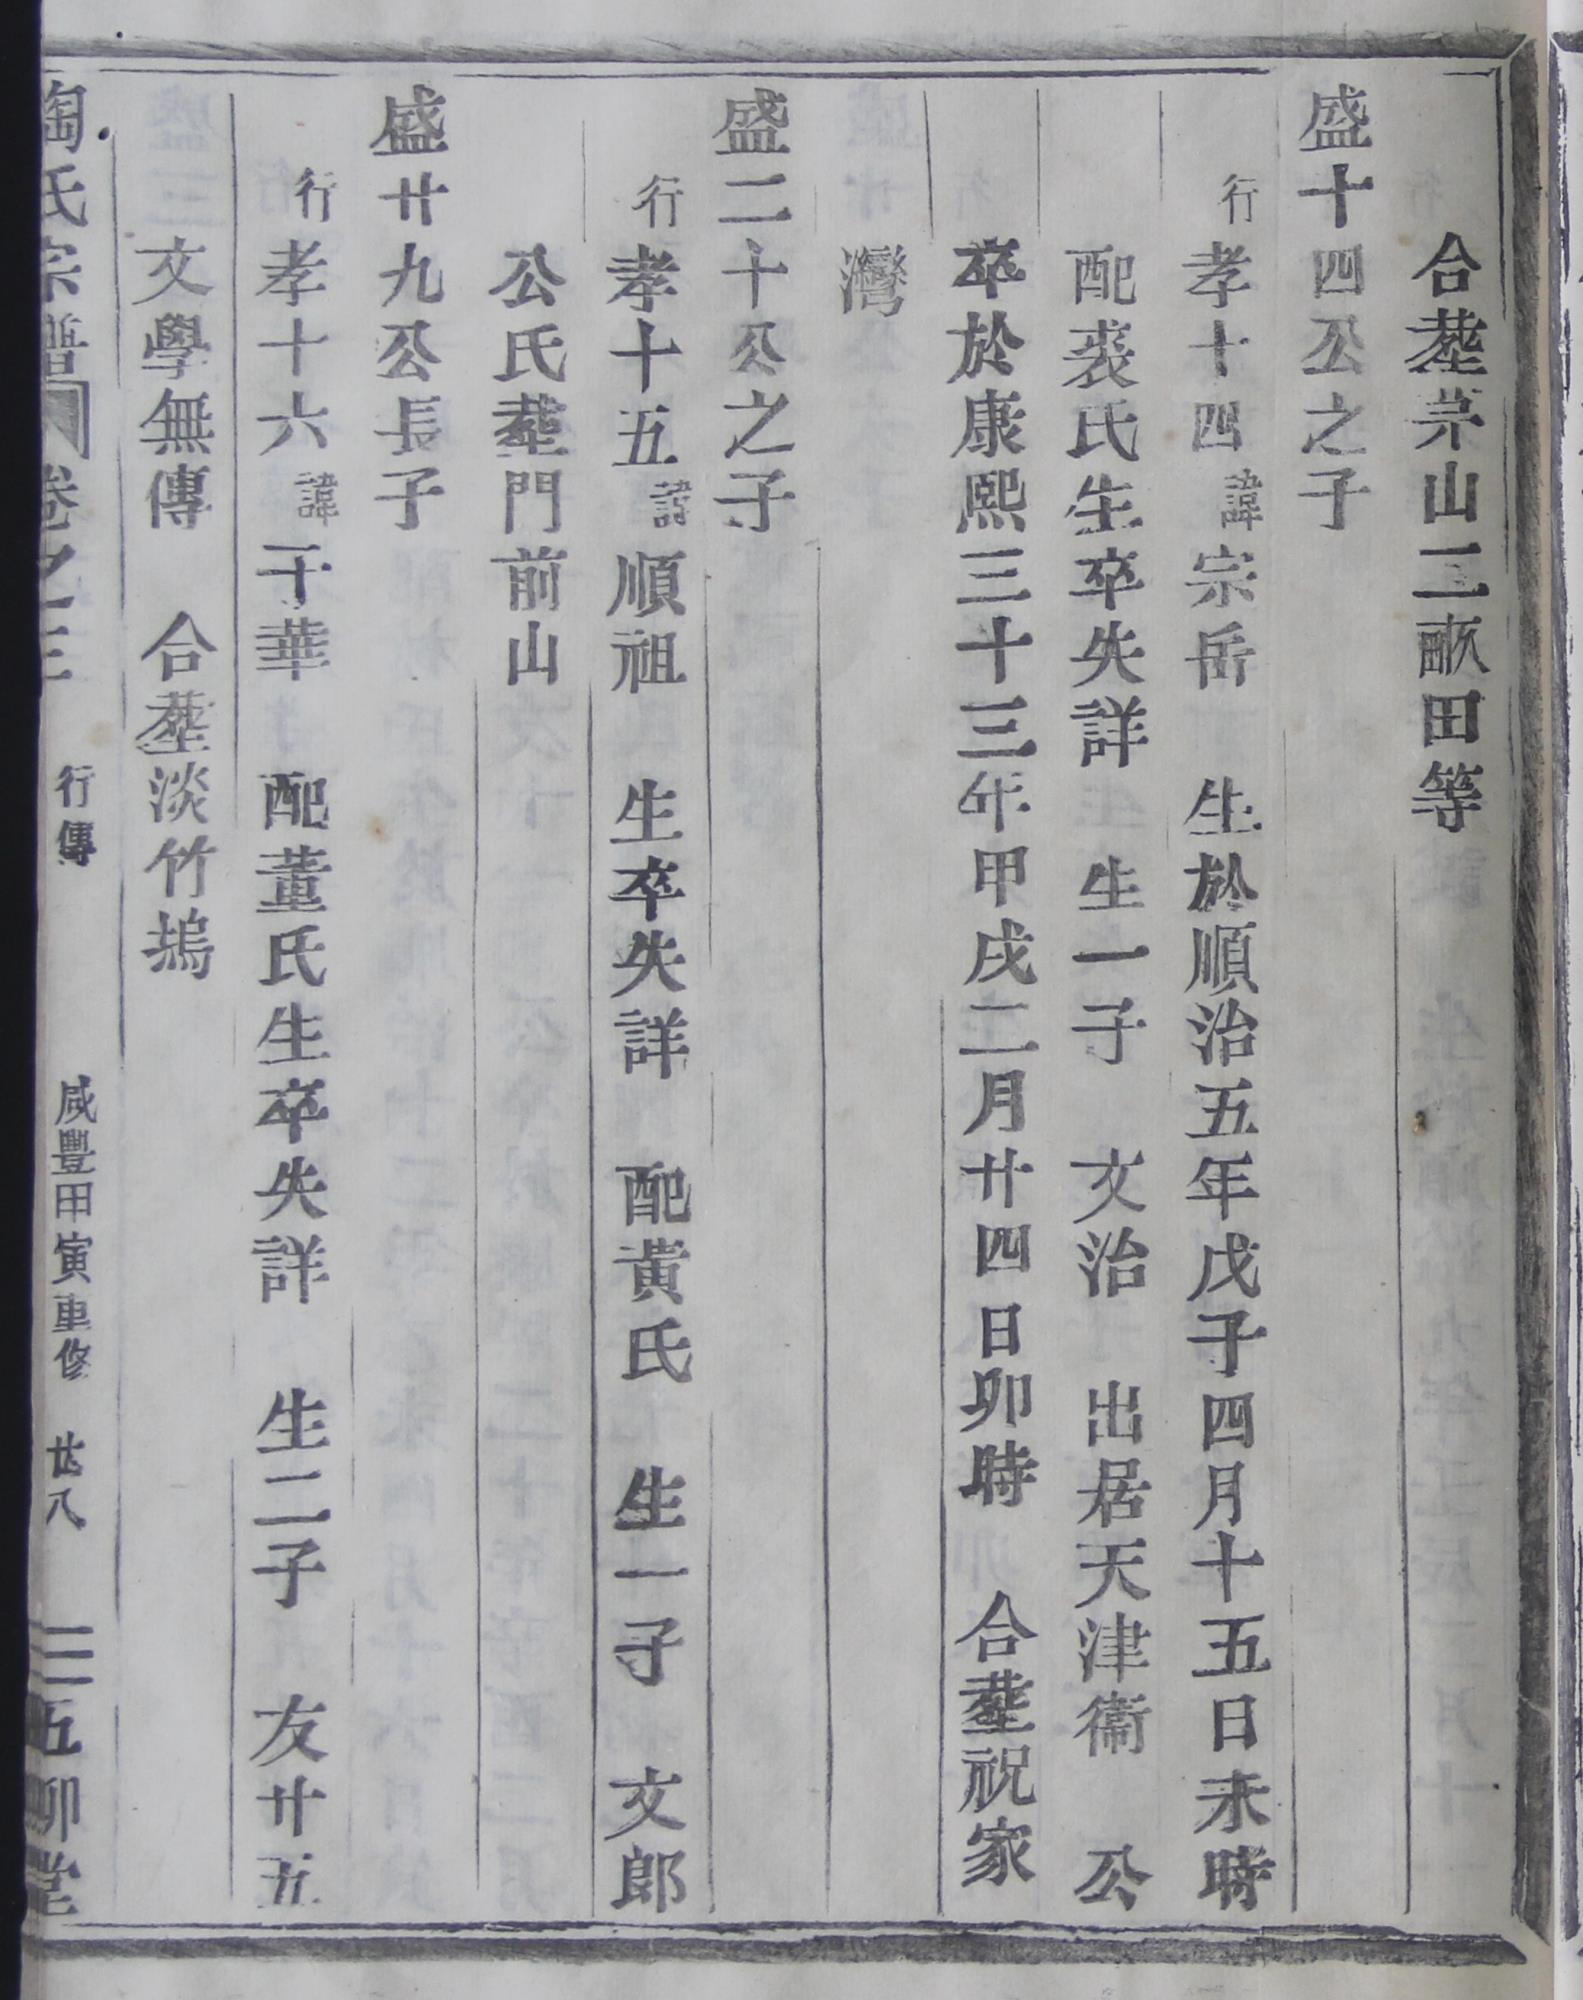 合塟茅山二畝田等
盛十四公之子
行孝十四諱宗岳　生於順治五年戊子四月十五日未時
配裘氏生卒失詳　生一子　文治　出居天津衞　公
卒於康熙三十三年甲戌二月廿四日卯時　合塟祝家
灣
盛二十公之子
行孝十五諱順祖　生卒失詳　配黄氏　生一子　文郎
公氏塟門前山
盛廿九公長子
行孝十六諱于華　配董氏生卒失詳　生二子　友廿五
文學無傳　合塟淡竹塢
陶氏宗譜　卷之三　行傳　咸豐甲寅重修　廿八　五柳堂